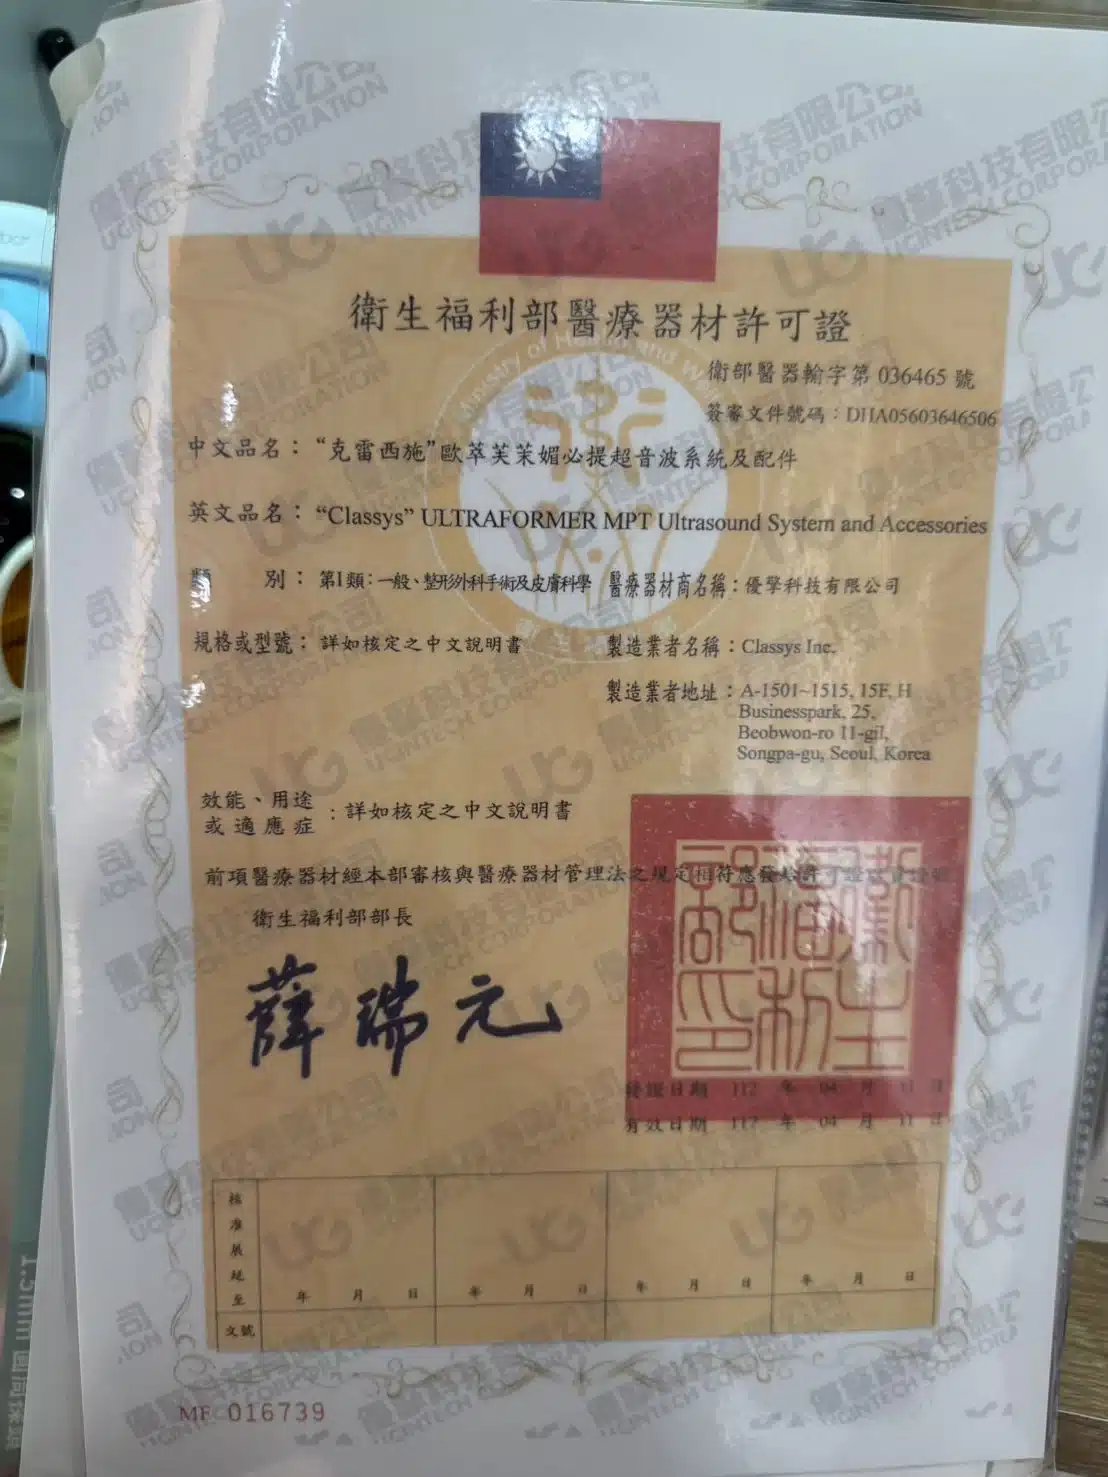 衛生福利部醫療器材許可證
衛部醫器輸字第 036465 號
簽審文件號碼：DHA05603646506
中文品名：“克雷西施”歐萃芙茉媚必提超音波系統及配件
英文品名：“Classys” ULTRAFORMER MPT Ultrasound System and Accessories
類 別：第I類：一般、整形外科手術及皮膚科學 醫療器材商名稱：優擎科技有限公司
規格或型號：詳如核定之中文說明書 製造業者名稱：Classys Inc.
製造業者地址：A-1501~1515, 15F, H
Businesspark, 25,
Beobwon-ro 11-gil,
Songpa-gu, Seoul, Korea
效能、用途
或適應症：詳如核定之中文說明書
前項醫療器材經本部審核與醫療器材管理法之規定相符應發給許可證
衛生福利部部長
薛瑞元
衛生福利部印
發證日期 112 年 04 月 11 日
有效日期 117 年 04 月 11 日
核准展延至
年 月 日 年 月 日 年 月 日 年 月 日
文號
MF 016739
優擎科技有限公司
UGINTECH CORPORATION
UG
1.5mm